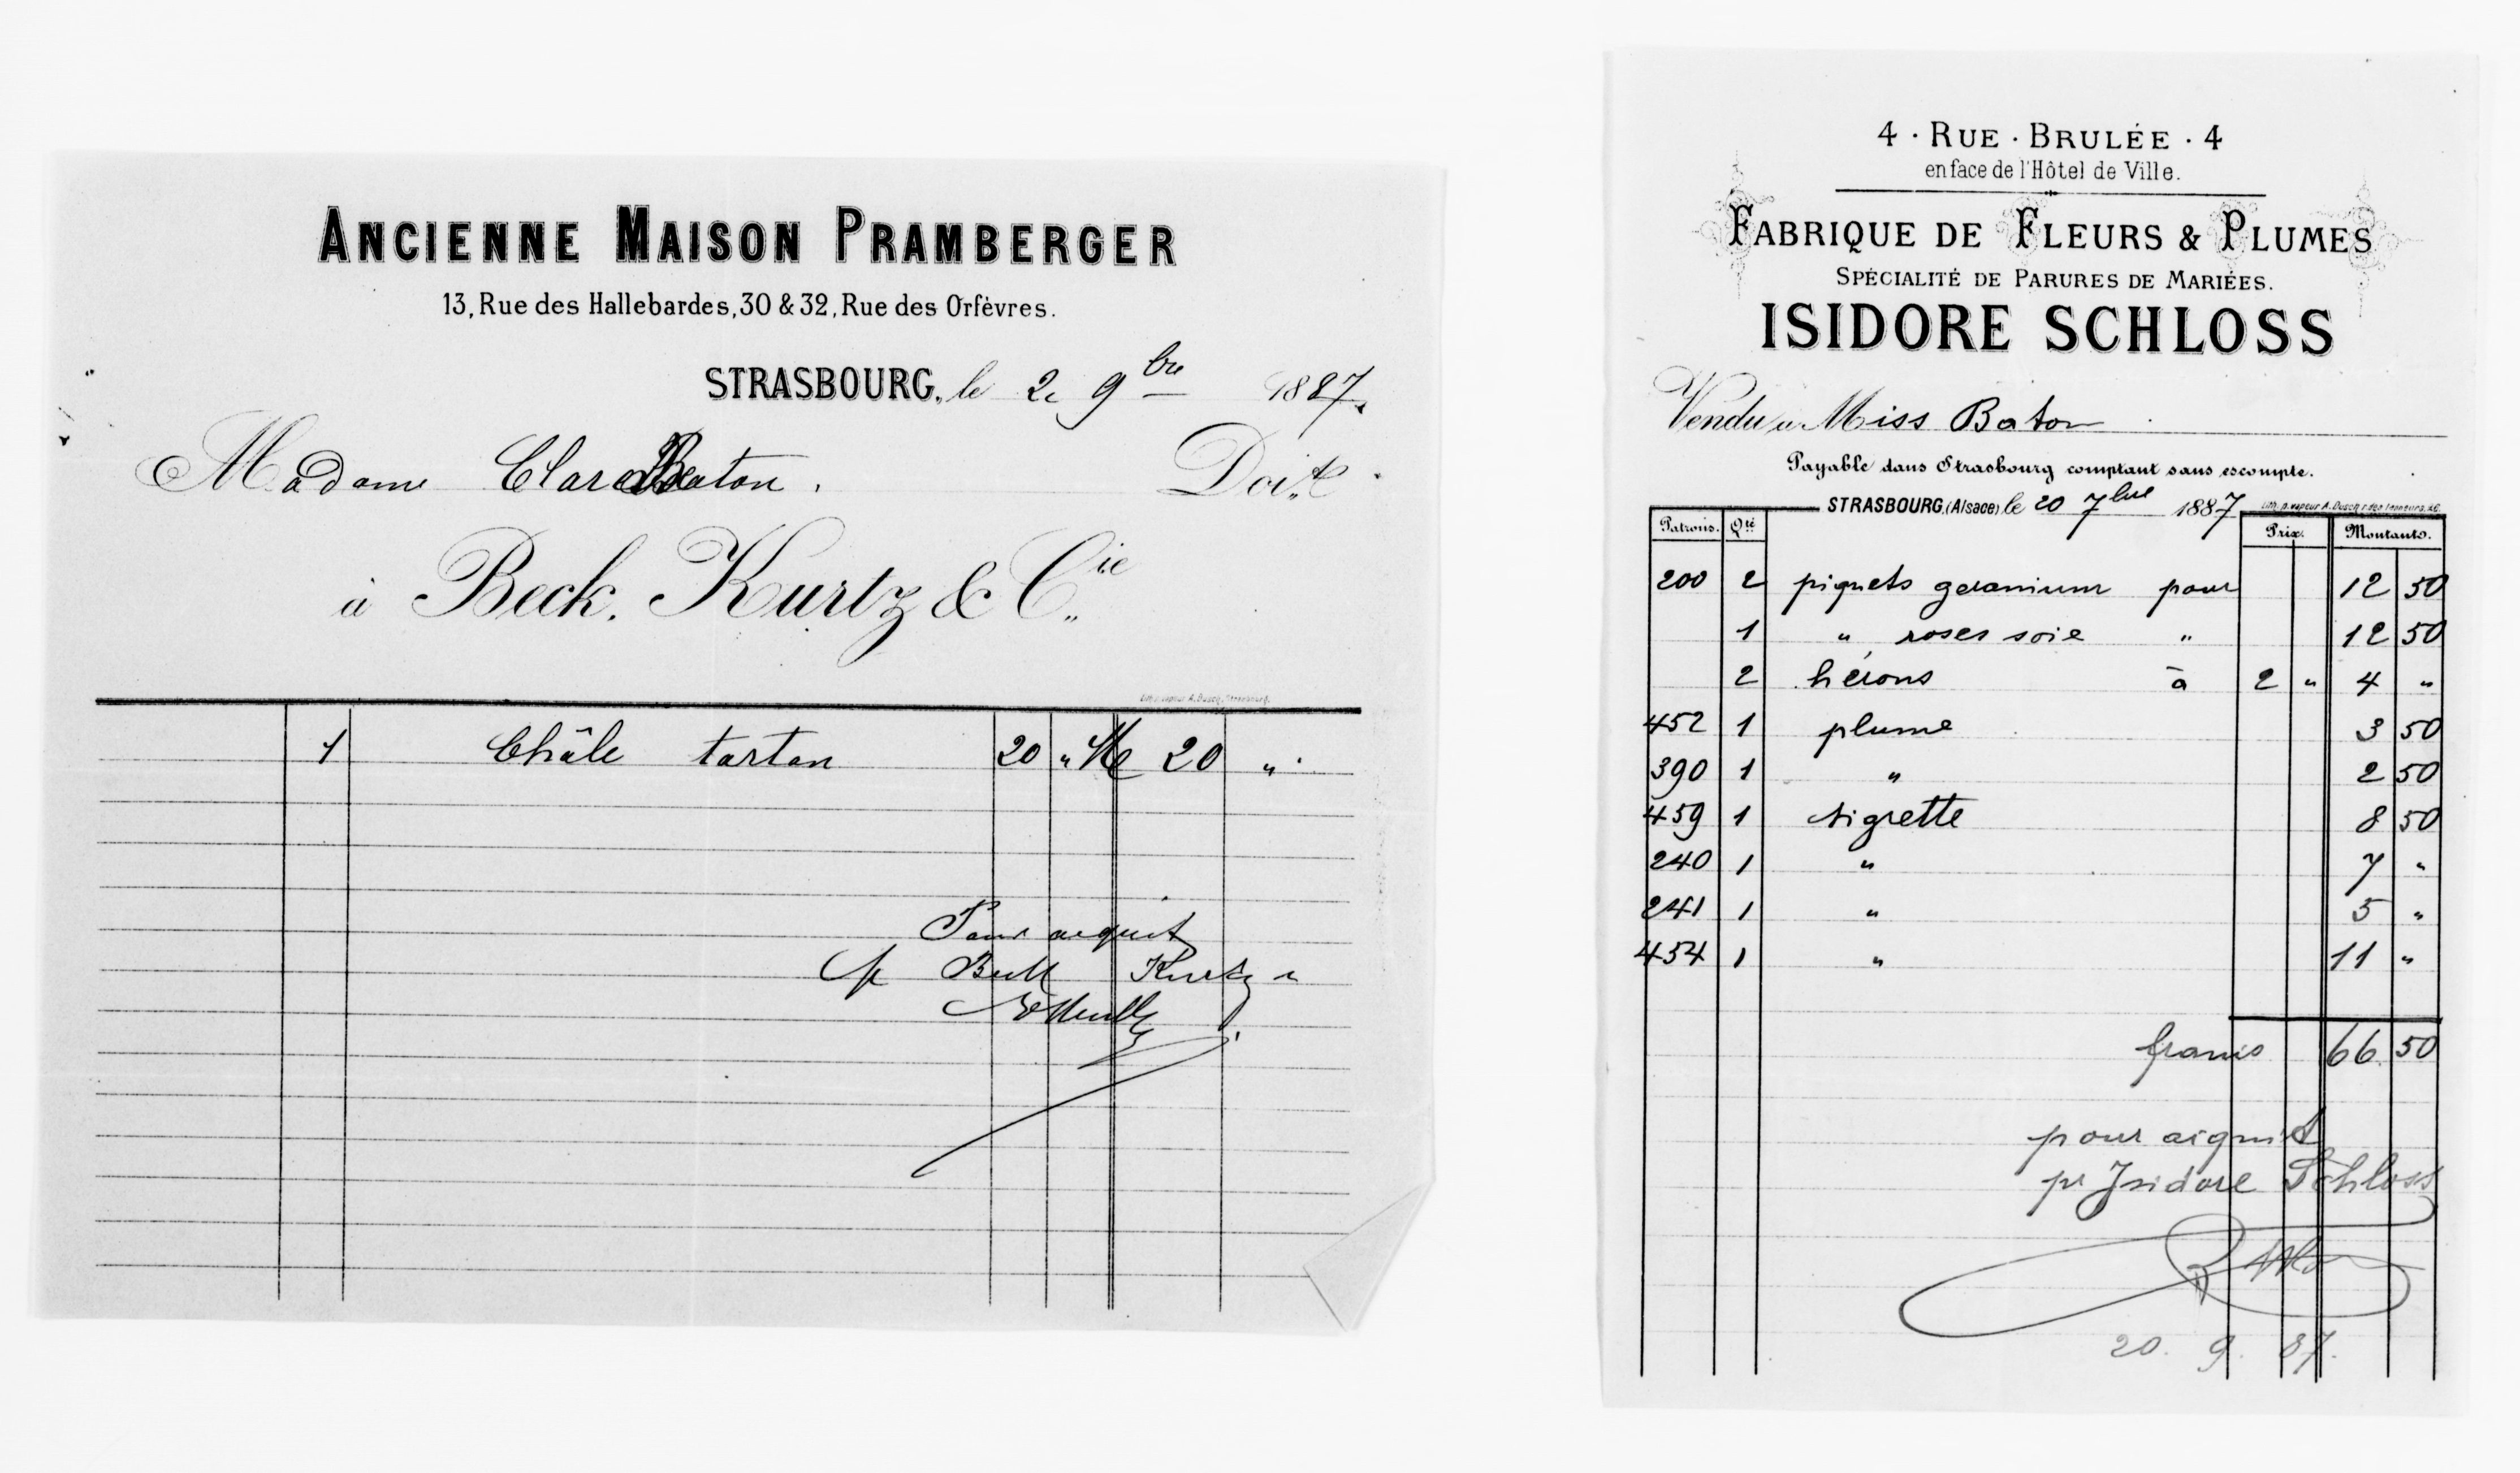 ANCIENNE MAISON PRAMBERGER
13, Rue des Hallebardes, 30 & 32, Rue des Orfèvres.
STRASBOURG, le 2 9bre 1887.
Madame Clara Baton. Doit
à Beck. Kurtz & Cie
Lith. à vapeur A. Dusch, Strasbourg.
1 Châle tartan 20 " M 20 "
Pour acquit
Kurtz
4 · RUE · BRULÉE · 4
en face de l'Hôtel de Ville.
FABRIQUE DE FLEURS & PLUMES
SPÉCIALITÉ DE PARURES DE MARIÉES.
ISIDORE SCHLOSS
Vendu à Miss Baton
Payable dans Strasbourg comptant sans escompte.
STRASBOURG, (Alsace) le 20 7bre 1887
Patrons. Qté Prix. Montants.
200 2 piquets geranium pour 12 50
1 " roses soie " 12 50
2 hérons à 2 " 4 "
452 1 plume 3 50
390 1 " 2 50
459 1 aigrette 8 50
240 1 " 7 "
241 1 " 5 "
454 1 " 11 "
francs 66 50
pour aiquit
pr Isidore Schloss
20. 9. 87.